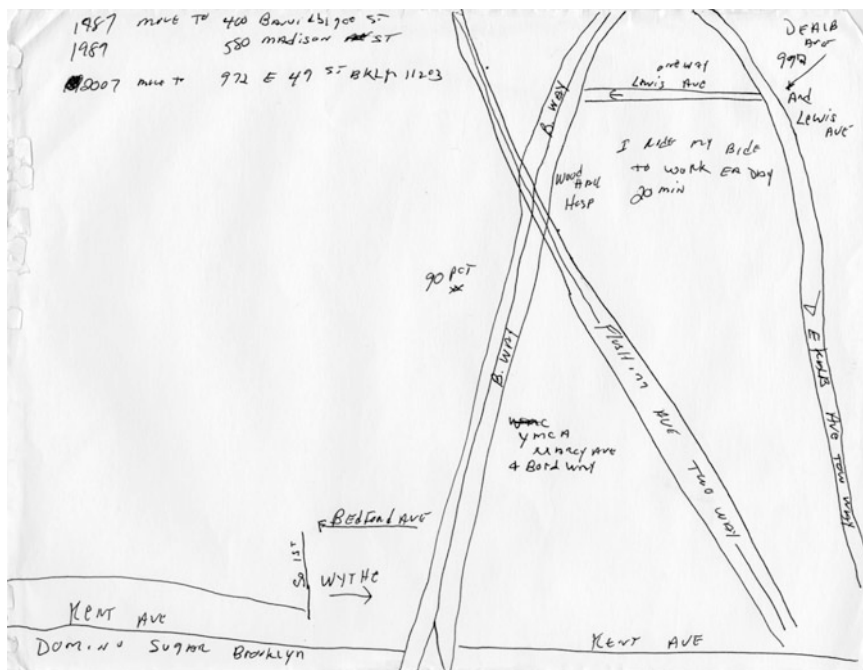 1987 move TO 400 ST
1989 580 MADISON ST
2007 move to 972 E 49 ST BKLYN 11203
DEALB
AVE
992
And
Lewis
AVE
one way
Lewis AVE
B. WAY
I Ride my Bike
to WORK EA DAY
20 min
Wood Hull
Hosp
90 PCT
B. WAY
Flushing AVE TWO WAY
D E KALB AVE TOW WAY
YMCA
MARCY AVE
& Bord WAY
BEDFORD AVE
So 1ST
WYTHE
KENT AVE
KENT AVE
DOMINO SUGAR Brooklyn